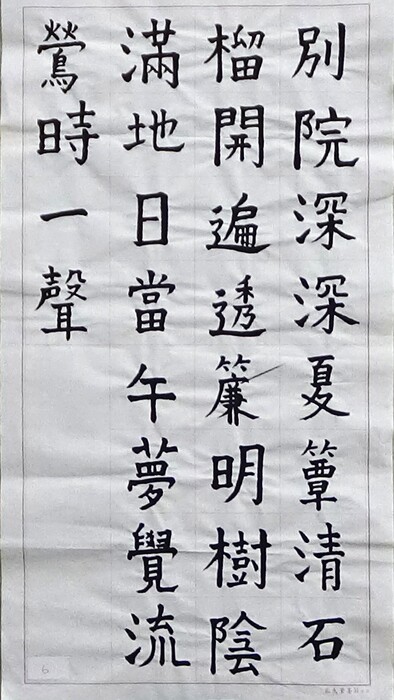 別院深深夏簟清石
榴開遍透簾明樹陰
滿地日當午夢覺流
鶯時一聲
6